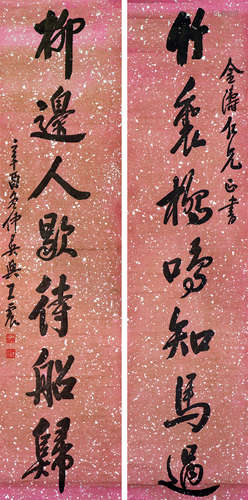 竹裏櫓鳴知馬過
金濤仁兄正書
柳邊人歇待船歸
辛酉冬仲吳興王震